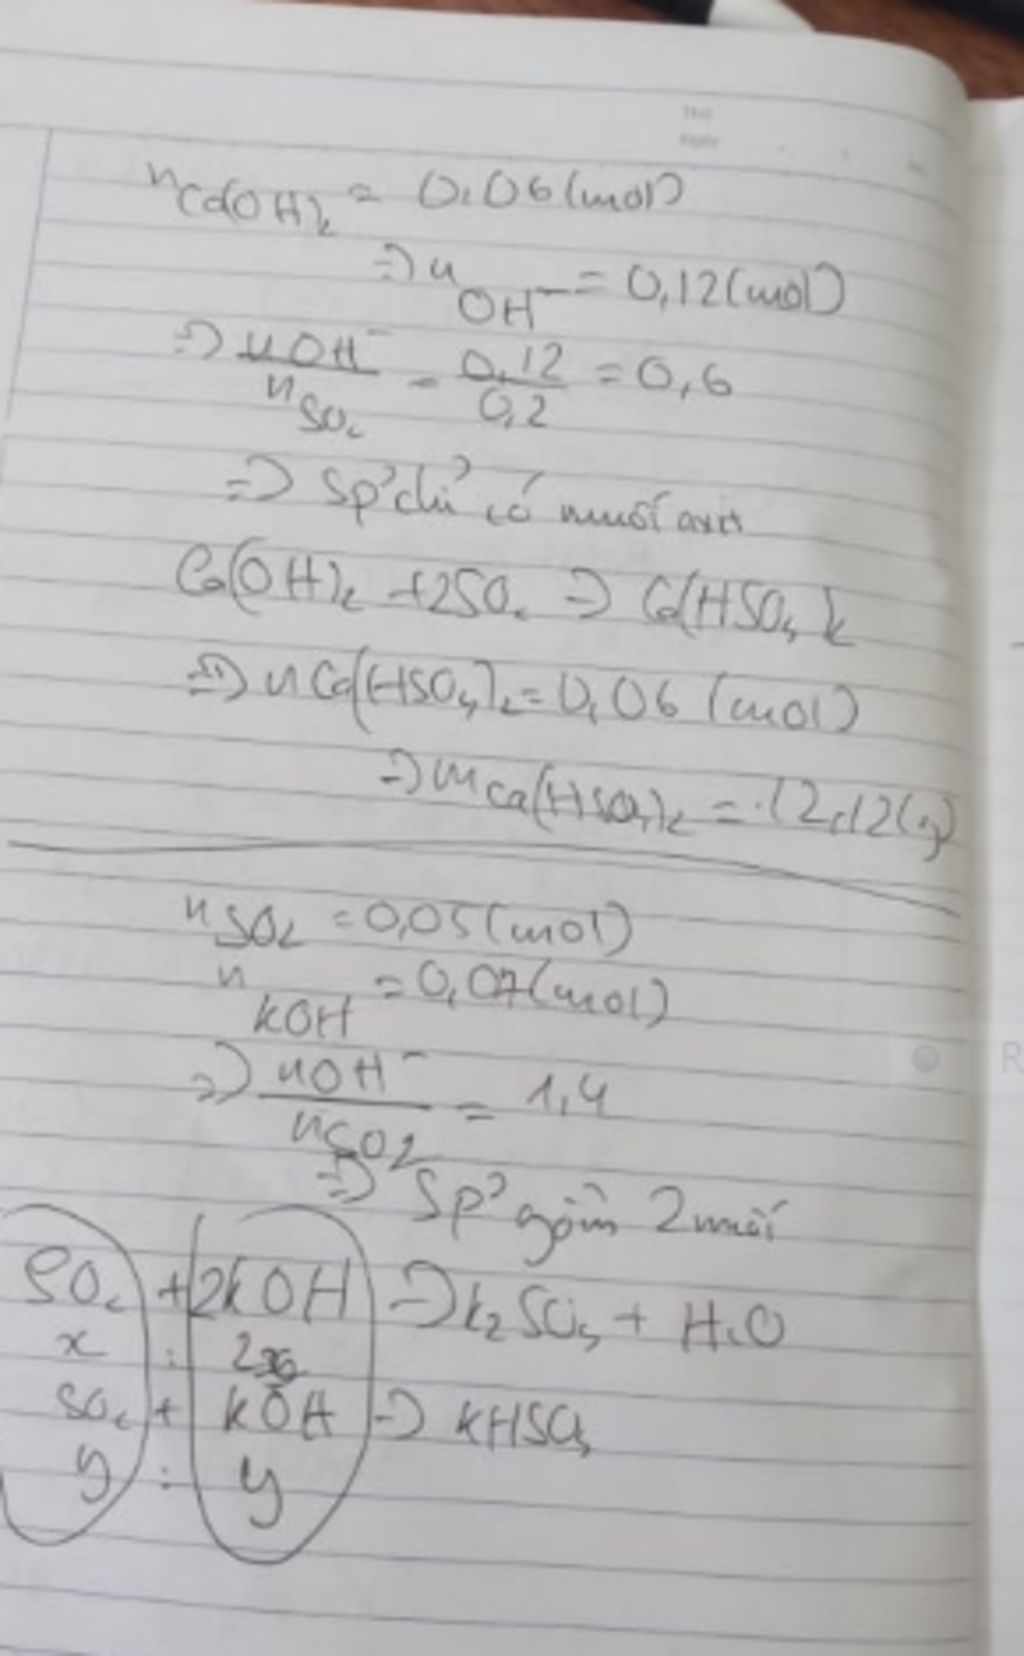 Thứ
Ngày
nCa(OH)₂ = 0,06 (mol)
=> nOH⁻ = 0,12 (mol)
=> nOH⁻/nSO₂ = 0,12/0,2 = 0,6
=> Sp' chỉ có muối axit
Ca(OH)₂ + 2SO₂ => Ca(HSO₃)₂
=> nCa(HSO₃)₂ = 0,06 (mol)
=> mCa(HSO₃)₂ = 12,12 (g)
nSO₂ = 0,05 (mol)
nKOH = 0,07 (mol)
=> nOH⁻/nSO2 = 1,4
=> Sp' gồm 2 muối
SO₂ + 2KOH => K₂SO₃ + H₂O
x : 2x
SO₂ + KOH => KHSO₃
y : y
R